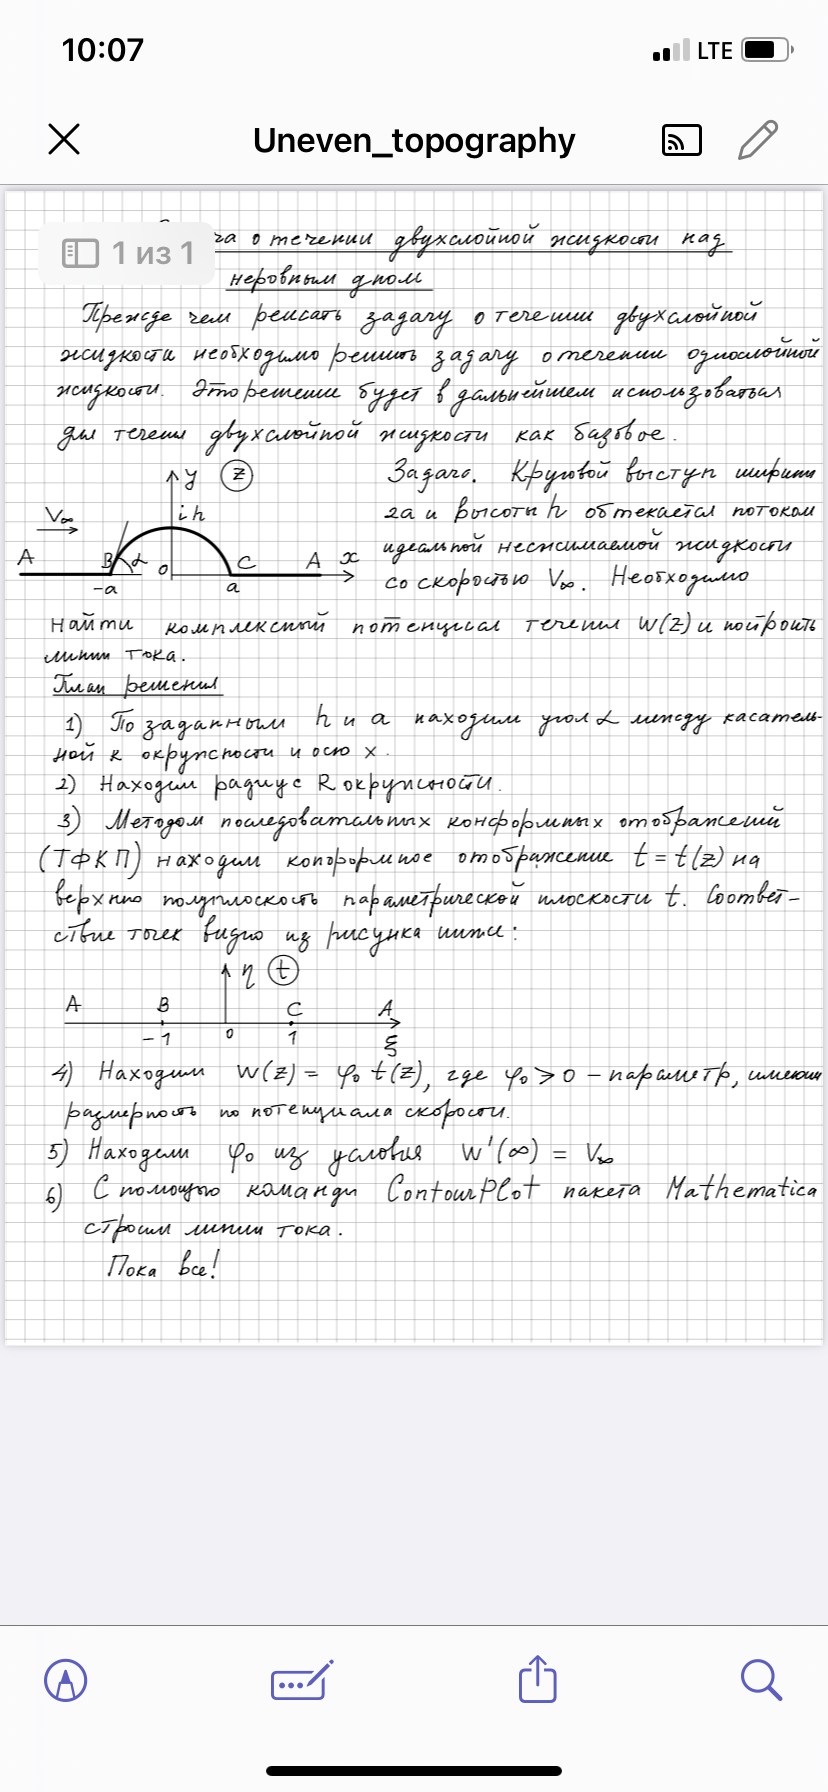 10:07
LTE
Uneven_topography
1 из 1
о течении двухслойной жидкости над
неровным дном
Прежде чем решать задачу о течении двухслойной
жидкости необходимо решить задачу о течении однослойной
жидкости. Это решение будет в дальнейшем использоваться
для течения двухслойной жидкости как базовое.
y z
ih
V∞
A B α 0 C A x
-a a
Задача. Круговой выступ ширины
2a и высоты h обтекается потоком
идеальной несжимаемой жидкости
со скоростью V∞. Необходимо
найти комплексный потенциал течения W(z) и построить
линии тока.
План решения
1) По заданным h и a находим угол α между касатель-
ной к окружности и осью x.
2) Находим радиус R окружности.
3) Методом последовательных конформных отображений
(ТФКП) находим конформное отображение t = t(z) на
верхнюю полуплоскость параметрической плоскости t. Соответ-
ствие точек видно из рисунка ниже:
η t
A B C A
-1 0 1 ξ
4) Находим w(z) = φ₀ t(z), где φ₀ > 0 – параметр, имеющий
размерность потенциала скорости.
5) Находим φ₀ из условия w'(∞) = V∞
6) С помощью команды ContourPlot пакета Mathematica
строим линии тока.
Пока все!